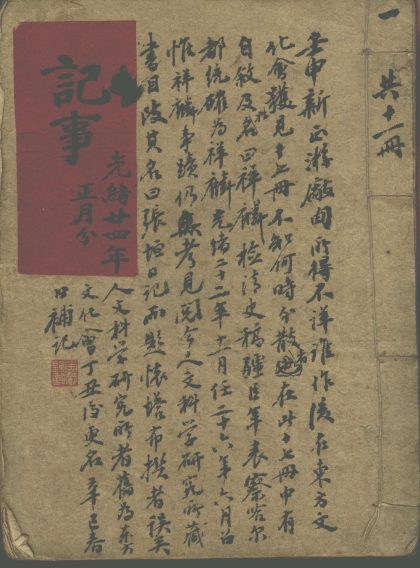 一
共十一冊
壬申新正游廠甸所得不詳誰作後在東方文
化會獲見十七冊不知何時分散者在此十七冊中有
自敘及名曰祥麟檢清史稿疆臣年表察哈尔
都統確為祥麟光緒二十二年十一月任二十六年六月召
惟祥麟事蹟仍無考見閱今人文科学研究所藏
書目改其名曰張垣日記而題懷塔布撰者誤矣
人文科学研究所者舊为东方
文化會丁丑後更名辛巳春
日補記
記事
光緒廿四年
正月分